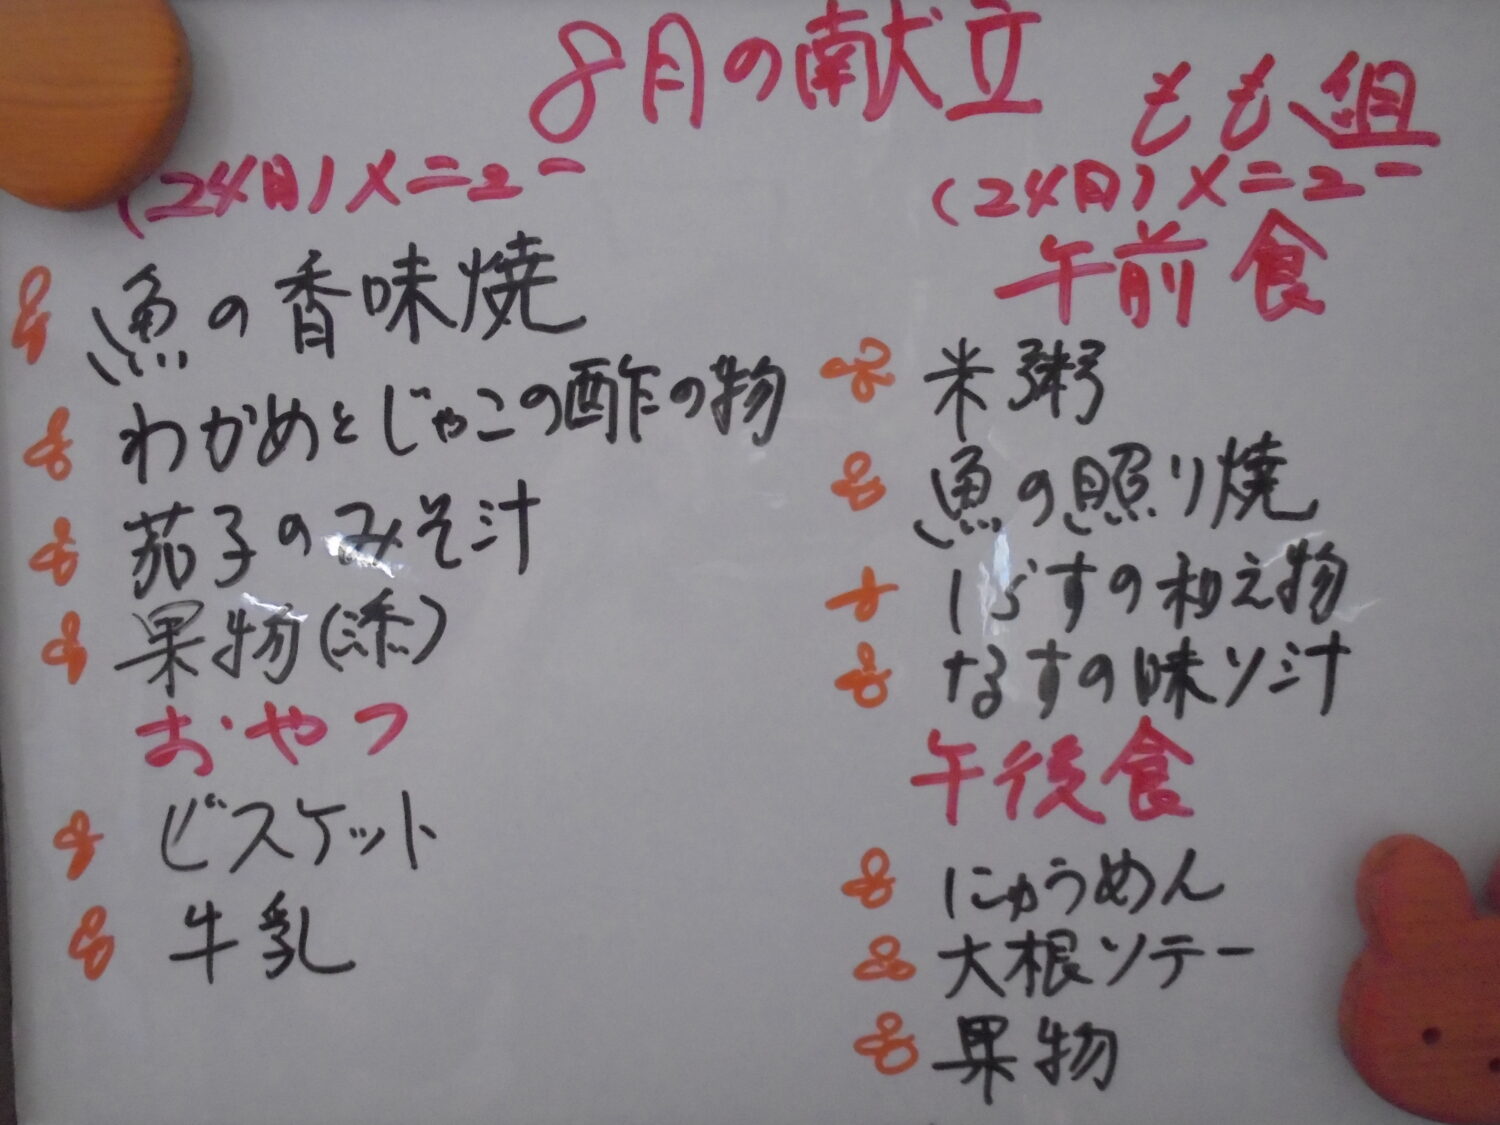 8月の献立
(24日)メニュー
魚の香味焼
わかめとじゃこの酢の物
茄子のみそ汁
果物(添)
おやつ
ビスケット
牛乳
もも組
(24日)メニュー
午前食
米粥
魚の照り焼
しらすの和え物
なすの味ソ汁
午後食
にゅうめん
大根ソテー
果物